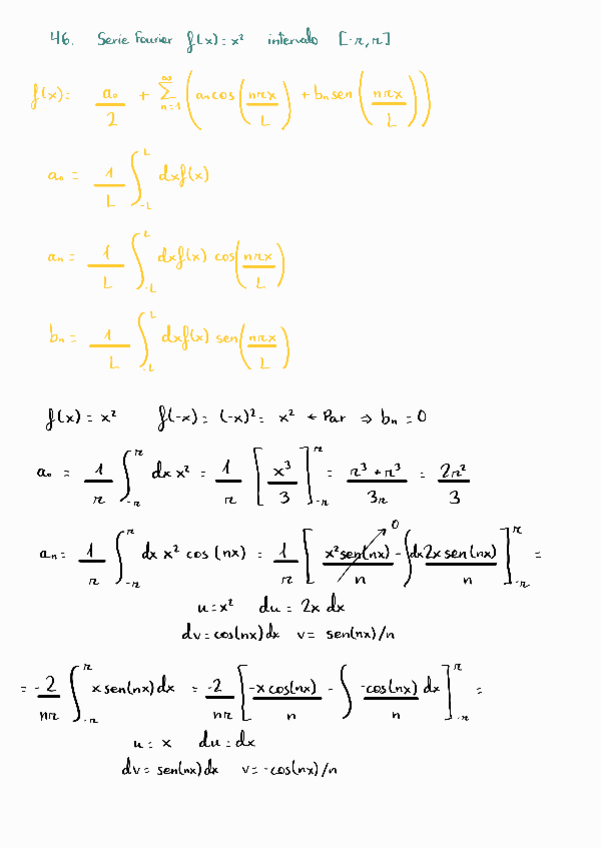 46. Serie Fourier f(x) = x² intervalo [-π, π]
f(x) = a₀/2 + ∑_{n=1}^{∞} (aₙ cos(nπx/L) + bₙ sen(nπx/L))
aₙ = 1/L ∫_{-L}^{L} dx f(x)
aₙ = 1/L ∫_{-L}^{L} dx f(x) cos(nπx/L)
bₙ = 1/L ∫_{-L}^{L} dx f(x) sen(nπx/L)
f(x) = x² f(-x) = (-x)² = x² ← Par ⇒ bₙ = 0
a₀ = 1/π ∫_{-π}^{π} dx x² = 1/π [x³/3]_{-π}^{π} = (π³ + π³)/3π = 2π²/3
aₙ = 1/π ∫_{-π}^{π} dx x² cos(nx) = 1/π [x² sen(nx)/n → 0 - ∫ dx 2x sen(nx)/n]_{-π}^{π} =
u = x² du = 2x dx
dv = cos(nx) dx v = sen(nx)/n
= -2/nπ ∫_{-π}^{π} x sen(nx) dx = -2/nπ [-x cos(nx)/n - ∫ -cos(nx)/n dx]_{-π}^{π} =
u = x du = dx
dv = sen(nx) dx v = -cos(nx)/n